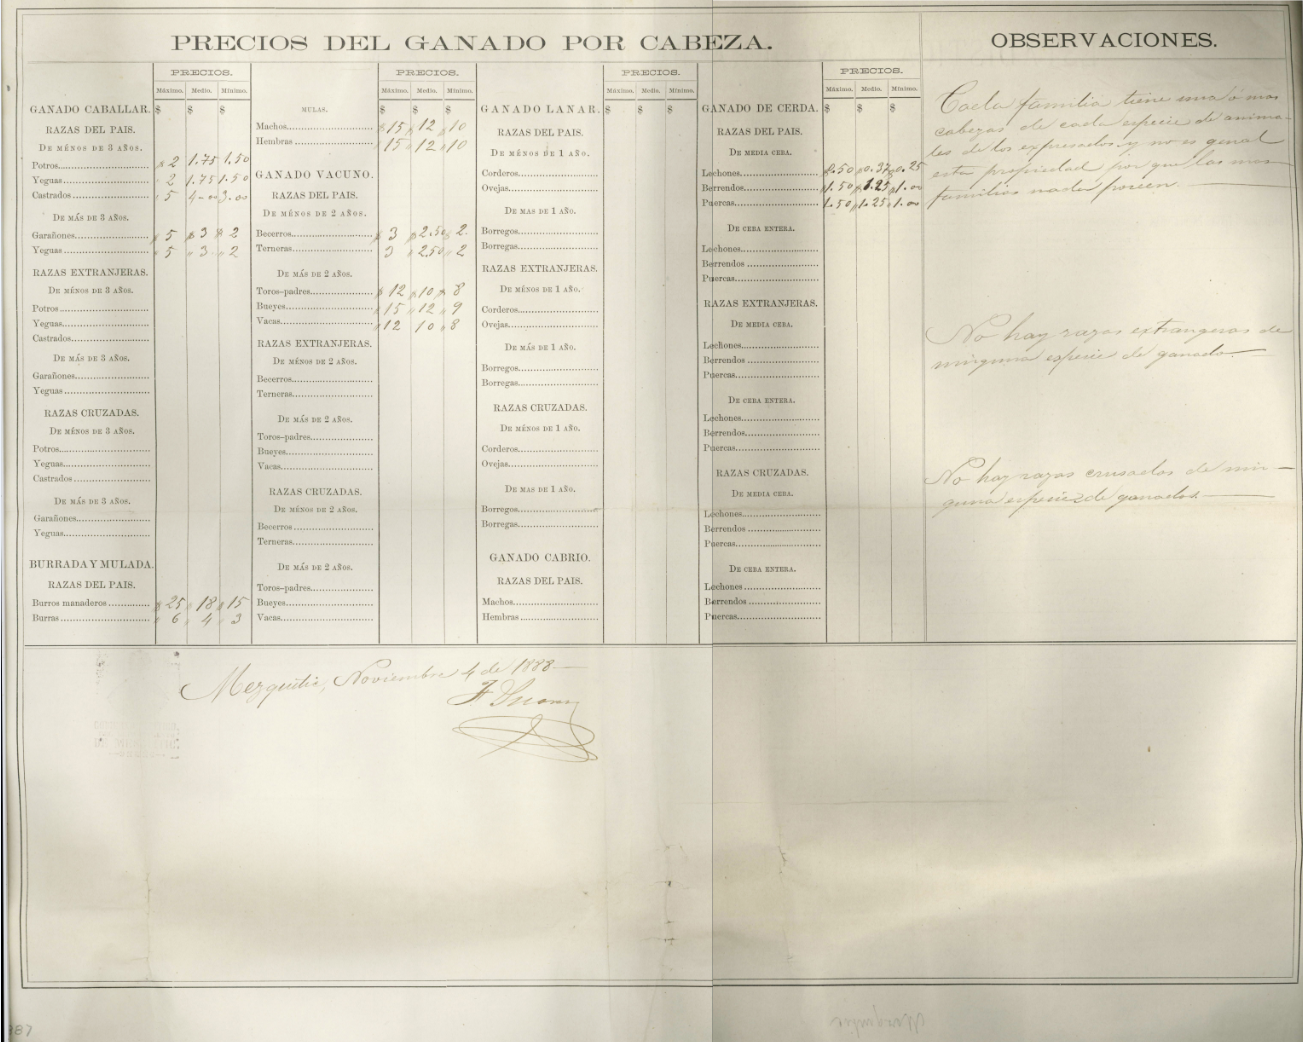 PRECIOS DEL GANADO POR CABEZA.
OBSERVACIONES.
PRECIOS.
Máximo. Medio. Mínimo.
GANADO CABALLAR. $ $ $
RAZAS DEL PAIS.
DE MÉNOS DE 3 AÑOS.
Potros 2 1.75 1.50
Yeguas 2 1.75 1.50
Castrados 5 4.00 3.00
DE MÁS DE 3 AÑOS.
Garañones $ 5 $ 3 $ 2
Yeguas 5 3 2
RAZAS EXTRANJERAS.
DE MÉNOS DE 3 AÑOS.
Potros
Yeguas
Castrados
DE MÁS DE 3 AÑOS.
Garañones
Yeguas
RAZAS CRUZADAS.
DE MÉNOS DE 3 AÑOS.
Potros
Yeguas
Castrados
DE MÁS DE 3 AÑOS.
Garañones
Yeguas
BURRADA Y MULADA.
RAZAS DEL PAIS.
Burros manaderos $ 25 18 15
Burras 6 4 3
PRECIOS.
Máximo. Medio. Mínimo.
MULAS. $ $ $
Machos $ 15 $ 12 $ 10
Hembras 15 12 10
GANADO VACUNO.
RAZAS DEL PAIS.
DE MÉNOS DE 2 AÑOS.
Becerros $ 3 $ 2.50 $ 2.
Terneras 3 2.50 2
DE MÁS DE 2 AÑOS.
Toros-padres $ 12 $ 10 $ 8
Bueyes 15 12 9
Vacas 12 10 8
RAZAS EXTRANJERAS.
DE MÉNOS DE 2 AÑOS.
Becerros
Terneras
DE MÁS DE 2 AÑOS.
Toros-padres
Bueyes
Vacas
RAZAS CRUZADAS.
DE MÉNOS DE 2 AÑOS.
Becerros
Terneras
DE MÁS DE 2 AÑOS.
Toros-padres
Bueyes
Vacas
PRECIOS.
Máximo. Medio. Mínimo.
GANADO LANAR. $ $ $
RAZAS DEL PAIS.
DE MÉNOS DE 1 AÑO.
Corderos
Ovejas
DE MAS DE 1 AÑO.
Borregos
Borregas
RAZAS EXTRANJERAS.
DE MÉNOS DE 1 AÑO.
Corderos
Ovejas
DE MÁS DE 1 AÑO.
Borregos
Borregas
RAZAS CRUZADAS.
DE MÉNOS DE 1 AÑO.
Corderos
Ovejas
DE MAS DE 1 AÑO.
Borregos
Borregas
GANADO CABRIO.
RAZAS DEL PAIS.
Machos
Hembras
PRECIOS.
Máximo. Medio. Mínimo.
GANADO DE CERDA. $ $ $
RAZAS DEL PAIS.
DE MEDIA CEBA.
Lechones 0.50 0.37 0.25
Berrendos 1.50 1.25 1.00
Puercas 1.50 1.25 1.00
DE CEBA ENTERA.
Lechones
Berrendos
Puercas
RAZAS EXTRANJERAS.
DE MEDIA CEBA.
Lechones
Berrendos
Puercas
DE CEBA ENTERA.
Lechones
Berrendos
Puercas
RAZAS CRUZADAS.
DE MEDIA CEBA.
Lechones
Berrendos
Puercas
DE CEBA ENTERA.
Lechones
Berrendos
Puercas
Cada familia tiene una ó mas
cabezas de cada especie de anima-
les de los expresados y no es genal
esta propiedad por que las mas
familias nada poseen.
No hay razas extrangeras de
ninguna especie de ganado.
No hay razas crusadas de nin-
guna especie de ganados.
Mezquitic, Noviembre 4 de 1888